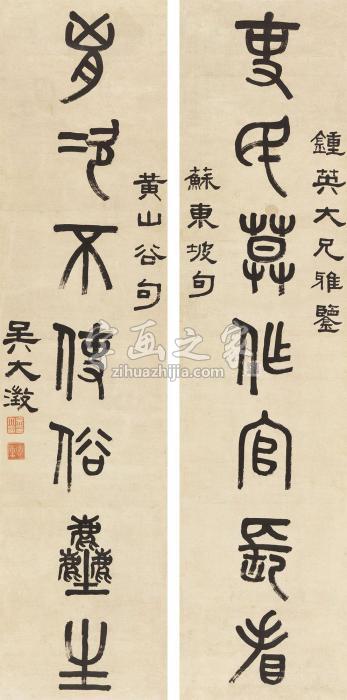 鍾英大兄雅鑒
吏民莫作官長看
蘇東坡句
黃山谷句
胷次不使俗塵生
吳大澂
字画之家
zihuazhijia.com